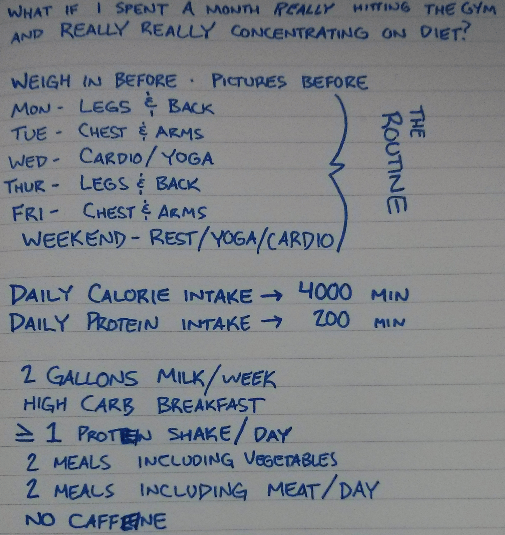 WHAT IF I SPENT A MONTH REALLY HITTING THE GYM
AND REALLY REALLY CONCENTRATING ON DIET?
WEIGH IN BEFORE · PICTURES BEFORE
MON - LEGS & BACK
TUE - CHEST & ARMS
WED - CARDIO/YOGA
THUR - LEGS & BACK
FRI - CHEST & ARMS
WEEKEND - REST/YOGA/CARDIO
THE
ROUTINE
DAILY CALORIE INTAKE → 4000 MIN
DAILY PROTEIN INTAKE → 200 MIN
2 GALLONS MILK/WEEK
HIGH CARB BREAKFAST
≥ 1 PROTEIN SHAKE/DAY
2 MEALS INCLUDING VEGETABLES
2 MEALS INCLUDING MEAT/DAY
NO CAFFEINE